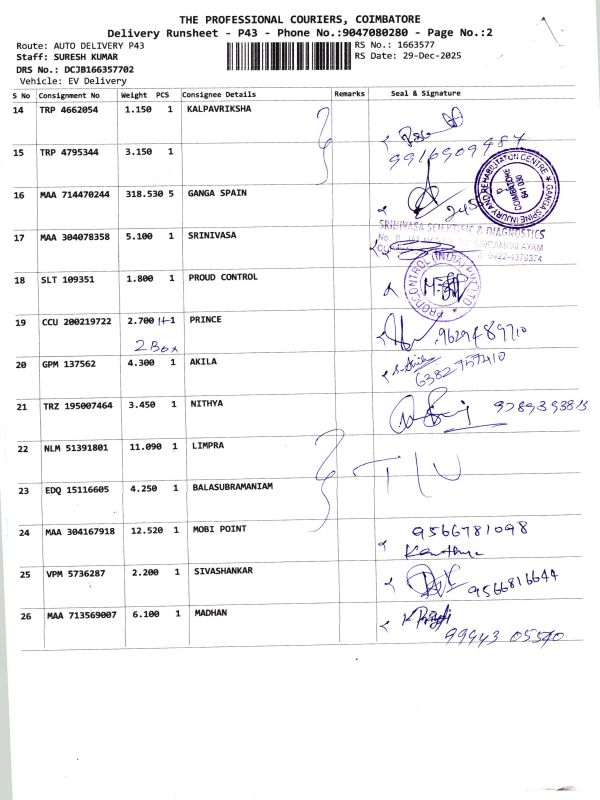 THE PROFESSIONAL COURIERS, COIMBATORE
Delivery Runsheet - P43 - Phone No.:9047080280 - Page No.:2
Route: AUTO DELIVERY P43 RS No.: 1663577
Staff: SURESH KUMAR RS Date: 29-Dec-2025
DRS No.: DCJB166357702
Vehicle: EV Delivery
S No Consignment No Weight PCS Consignee Details Remarks Seal & Signature
14 TRP 4662054 1.150 1 KALPAVRIKSHA
15 TRP 4795344 3.150 1 9916909487
16 MAA 714470244 318.530 5 GANGA SPAIN
GANGA SPINE INJURY AND REHABILITATION CENTRE
COIMBATORE
641 030
17 MAA 304078358 5.100 1 SRINIVASA
SRINIVASA SCIENTIFIC & DIAGNOSTICS
18 SLT 109351 1.800 1 PROUD CONTROL
PROPCONTROL (INDIA) PVT LTD
19 CCU 200219722 2.700 1+1 PRINCE 9629489710
2 Box
20 GPM 137562 4.300 1 AKILA 6382757410
21 TRZ 195007464 3.450 1 NITHYA
22 NLM 51391801 11.090 1 LIMPRA
T/U
23 EDQ 15116605 4.250 1 BALASUBRAMANIAM
24 MAA 304167918 12.520 1 MOBI POINT 9566781098
25 VPM 5736287 2.200 1 SIVASHANKAR 9566816644
26 MAA 713569007 6.100 1 MADHAN
99943 05540